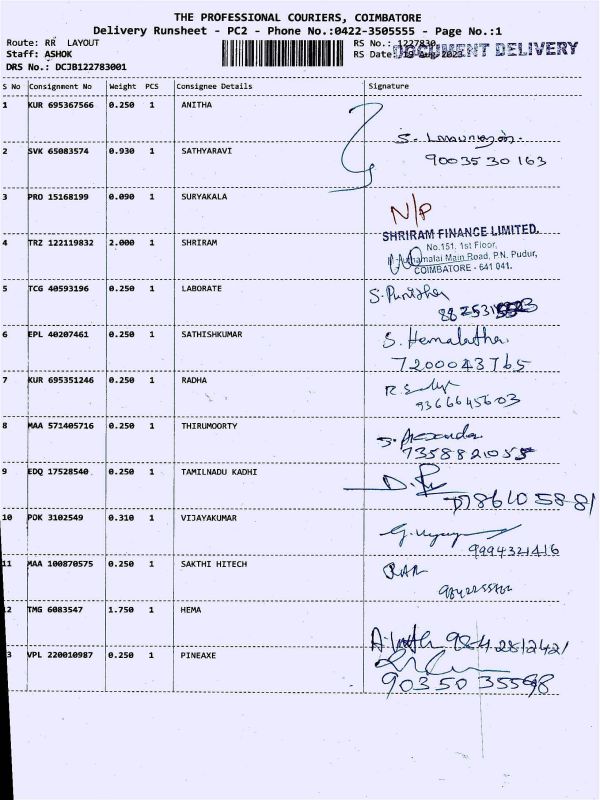 THE PROFESSIONAL COURIERS, COIMBATORE
Delivery Runsheet - PC2 - Phone No.:0422-3505555 - Page No.:1
Route: RR LAYOUT
RS No.: 1227830
Staff: ASHOK
RS Date: 19-Aug-2023
DOCUMENT DELIVERY
DRS No.: DCJB122783001
S No Consignment No Weight PCS Consignee Details Signature
1 KUR 695367566 0.250 1 ANITHA
2 SVK 65083574 0.930 1 SATHYARAVI
9003530163
3 PRO 15168199 0.090 1 SURYAKALA
N/P
SHRIRAM FINANCE LIMITED.
No.151, 1st Floor,
Main Road, P.N. Pudur,
COIMBATORE - 641 041.
4 TRZ 122119832 2.000 1 SHRIRAM
5 TCG 40593196 0.250 1 LABORATE
6 EPL 40207461 0.250 1 SATHISHKUMAR
S. Hemalatha
7200043765
7 KUR 695351246 0.250 1 RADHA
9366645603
8 MAA 571405716 0.250 1 THIRUMOORTY
7358821055
9 EDQ 17528540 0.250 1 TAMILNADU KADHI
10 POK 3102549 0.310 1 VIJAYAKUMAR
9994321416
11 MAA 100870575 0.250 1 SAKTHI HITECH
2 TMG 6083547 1.750 1 HEMA
9842812421
3 VPL 220010987 0.250 1 PINEAXE